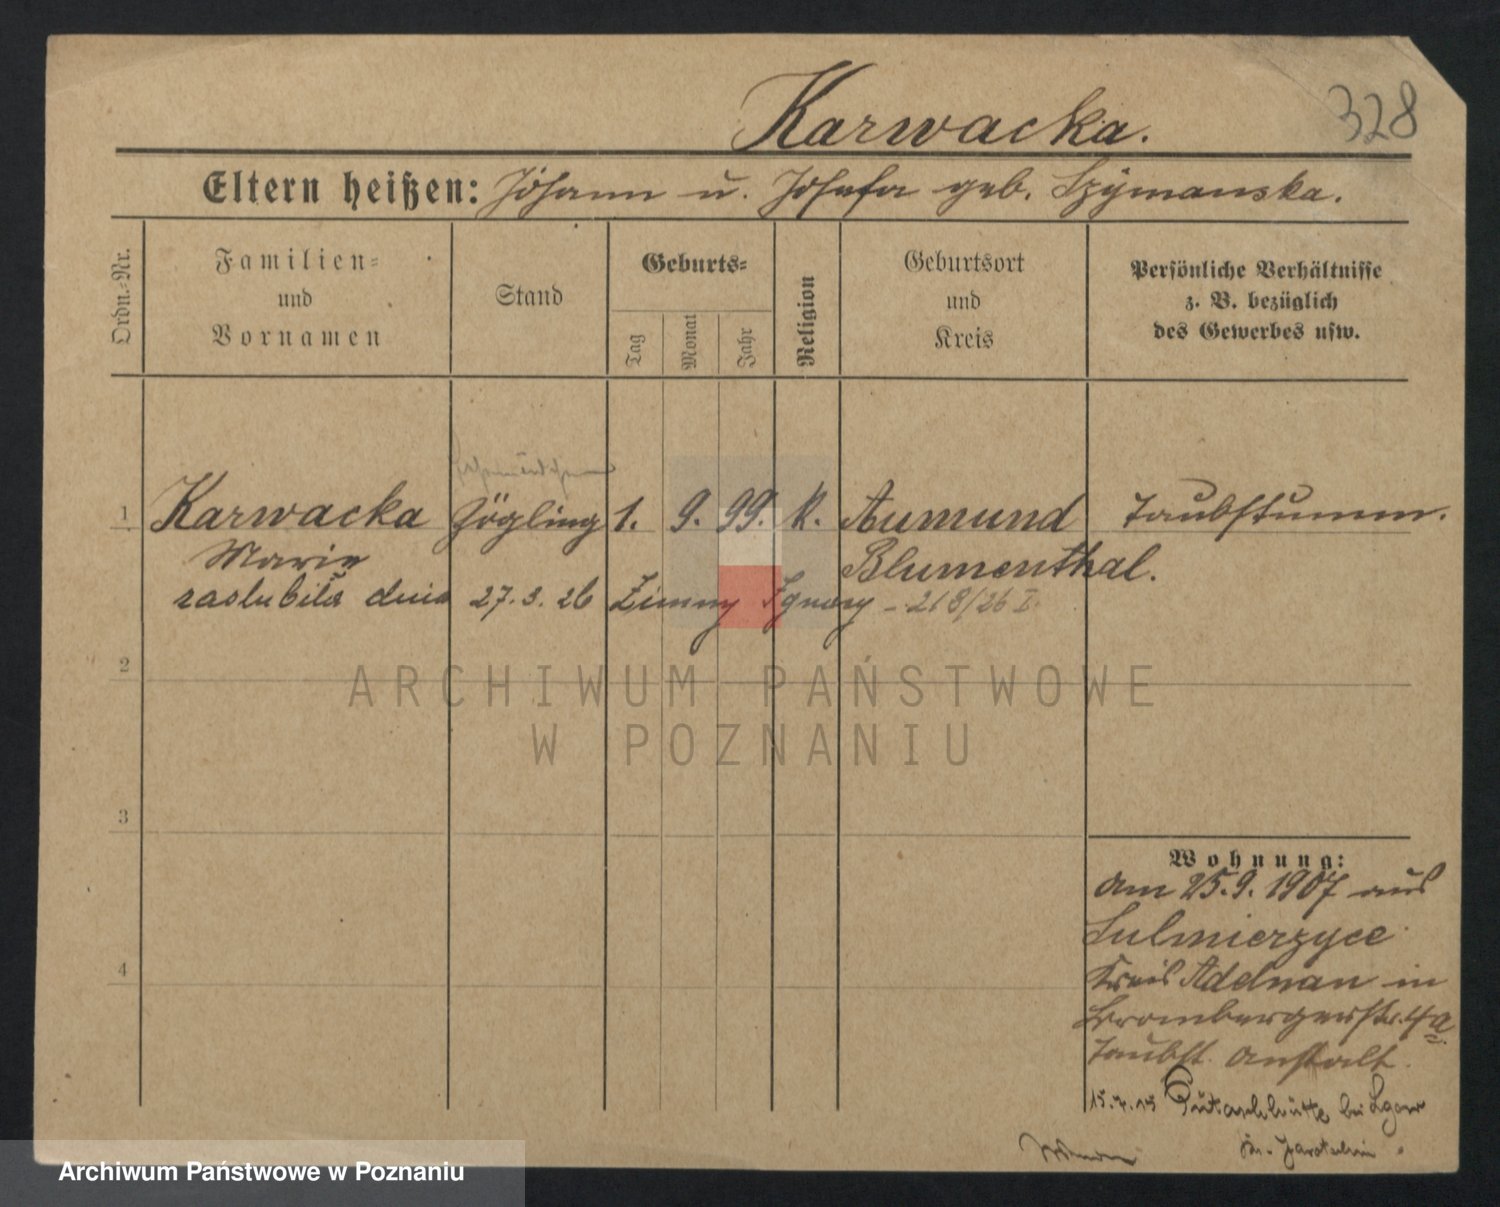 328
Karwacka.
Eltern heißen: Johann u. Josefa geb. Szymanska.
Ordn.-Nr.
Familien-
und
Vornamen
Stand
Geburts-
Tag
Monat
Jahr
Religion
Geburtsort
und
Kreis
Persönliche Verhältnisse
z. B. bezüglich
des Gewerbes usw.
1 Karwacka Zögling 1. 9. 99. k. Aumund Taubstumm.
Marie Blumenthal.
zaslubiła dnia 27.3.26 Zimny Ignacy - 218/26 I.
2
ARCHIWUM PAŃSTWOWE
W POZNANIU
3
4
Wohnung:
am 25.9.1907 aus
Sulmierzyce
Kreis Adelnau in
Brombergerstr. 4a
Taubst. Anstalt.
15.7.15 bei
Kr. Jarotschin
Archiwum Państwowe w Poznaniu